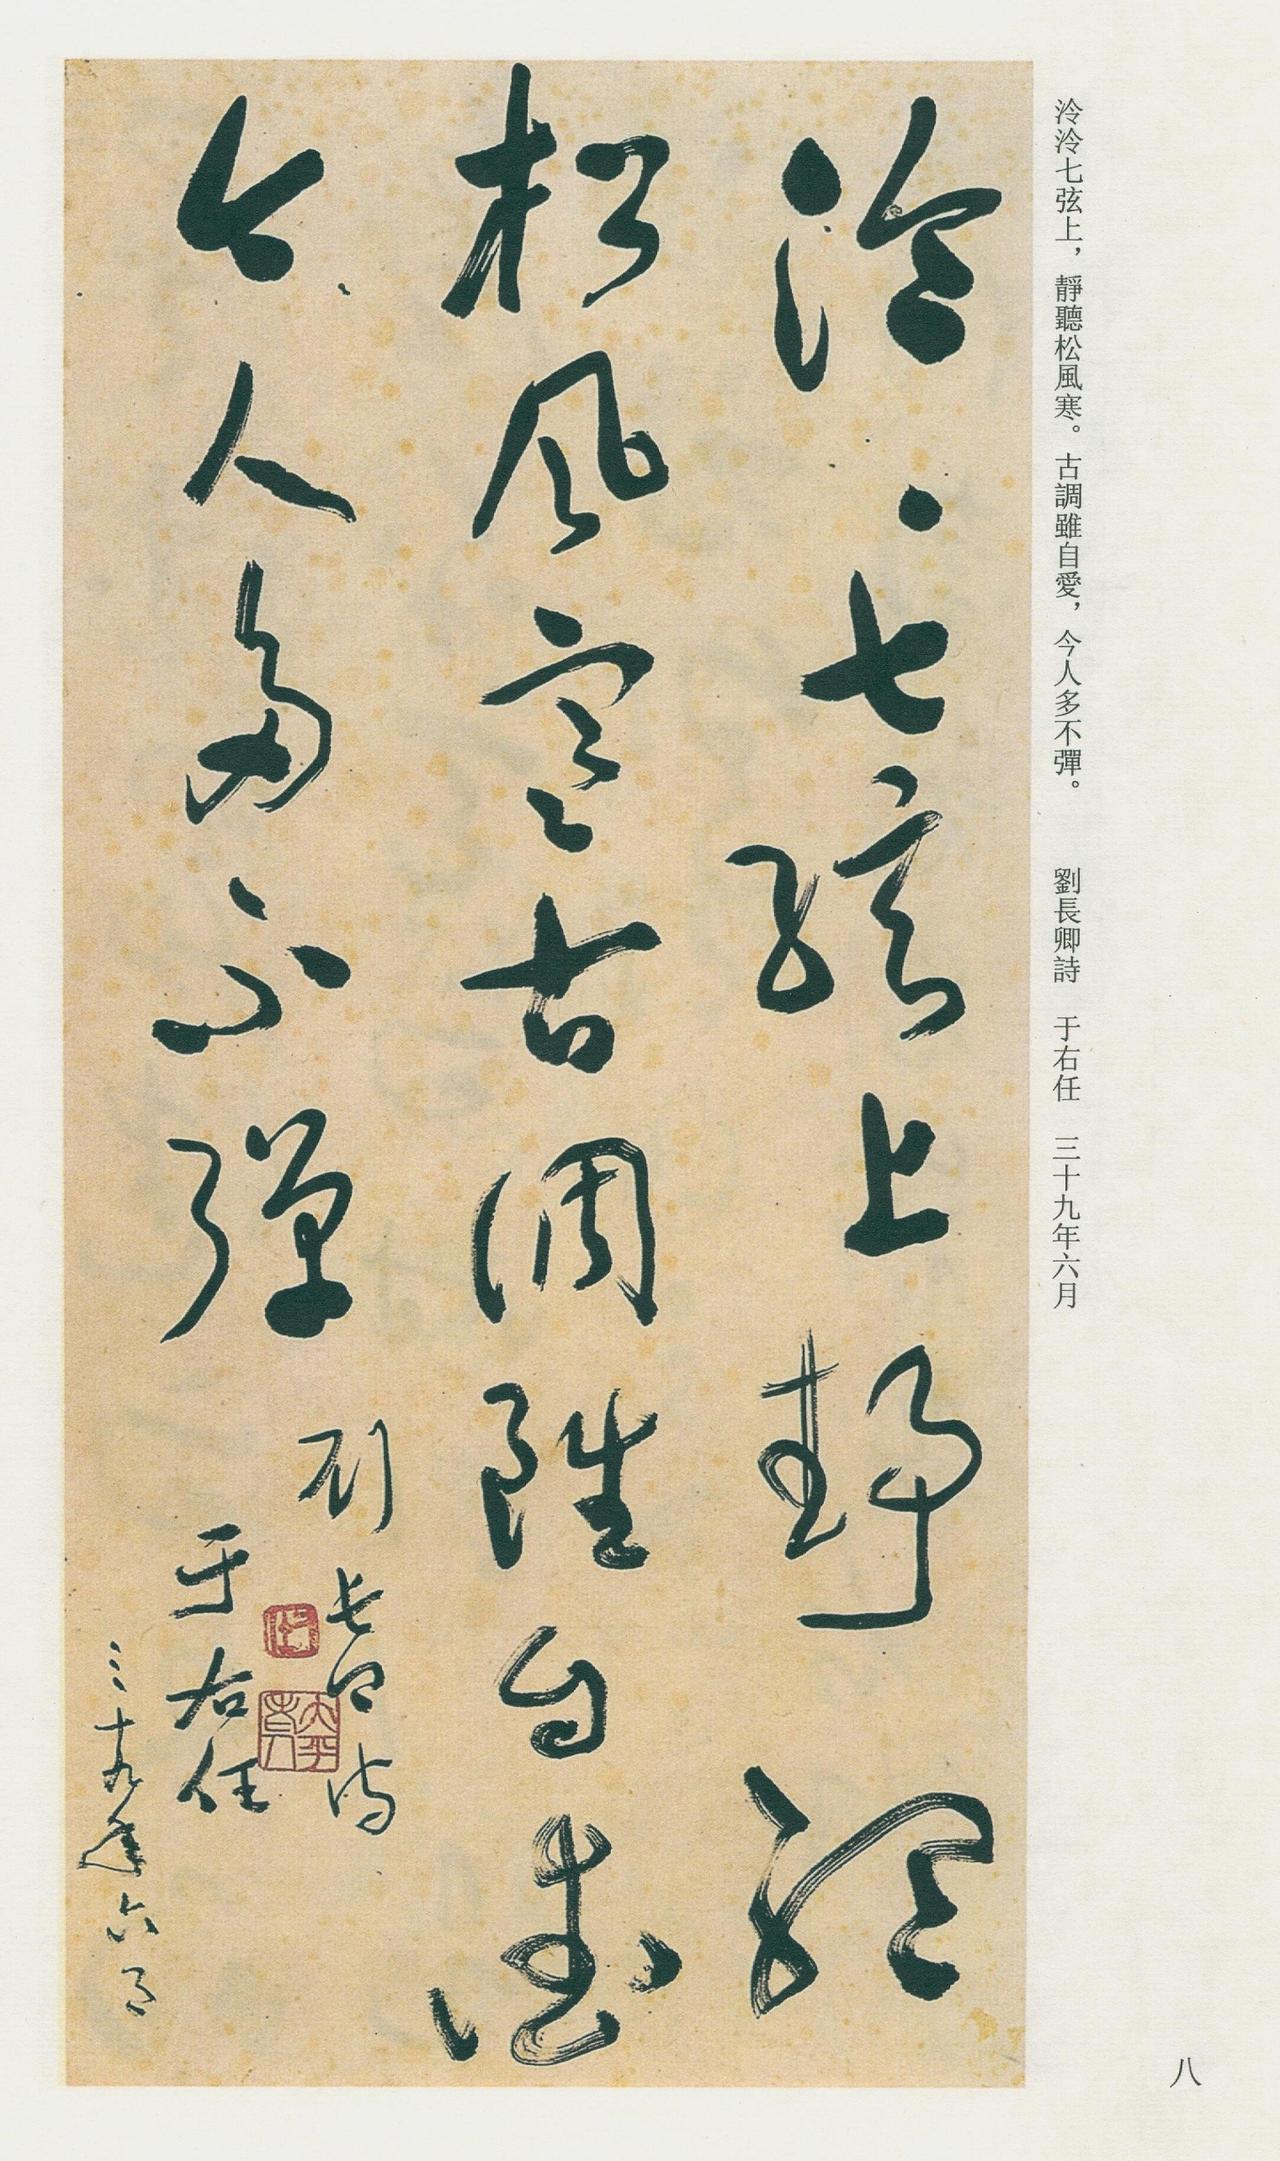 泠泠七弦上，靜聽松風寒。古調雖自愛，今人多不彈。　劉長卿詩　于右任　三十九年六月
泠、七弦上静聽
松風寒古調雖自愛
今人多不彈
劉長卿詩
于右任
三十九年六月
八